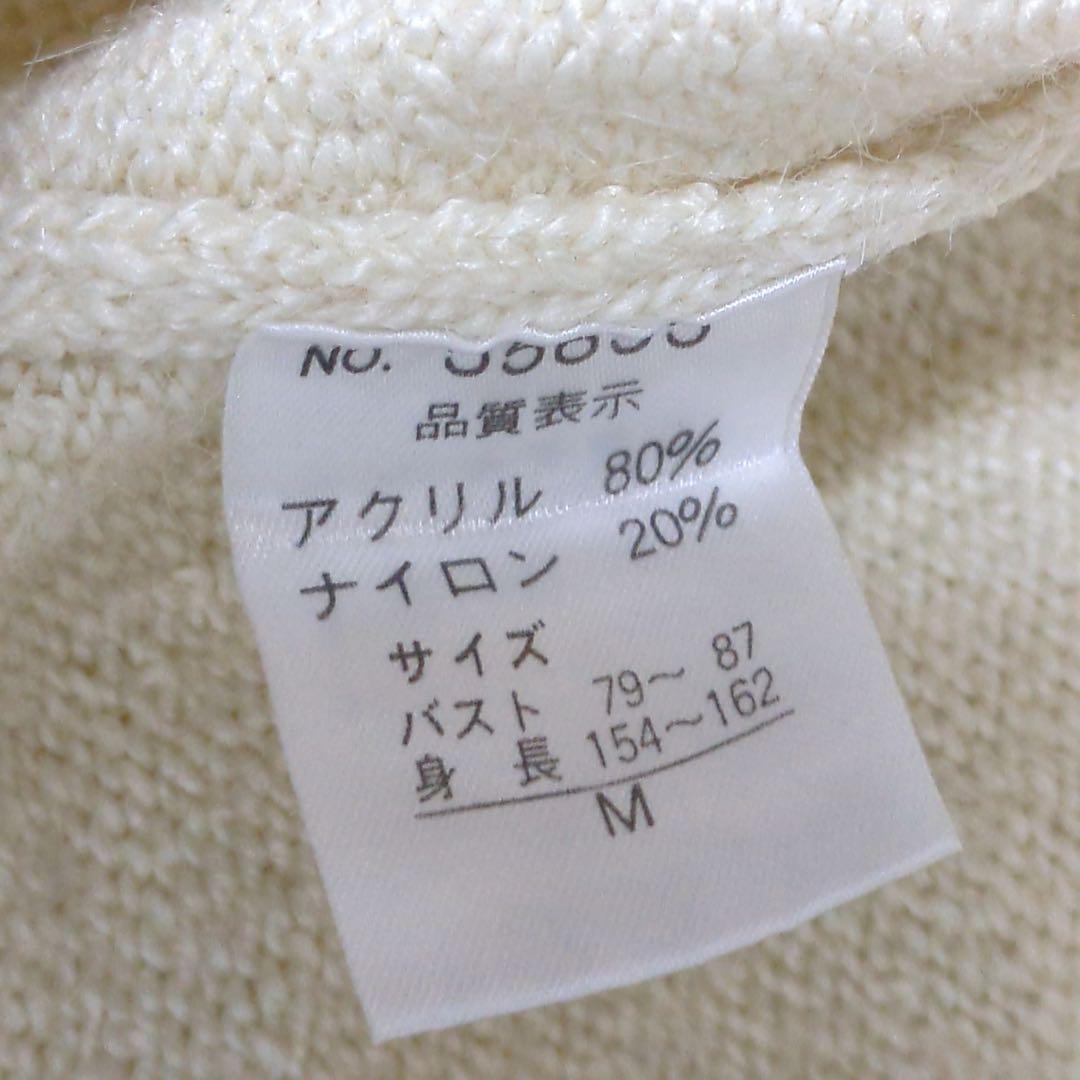 NO.
品質表示
アクリル 80%
ナイロン 20%
サイズ
バスト 79〜 87
身 長 154〜162
M